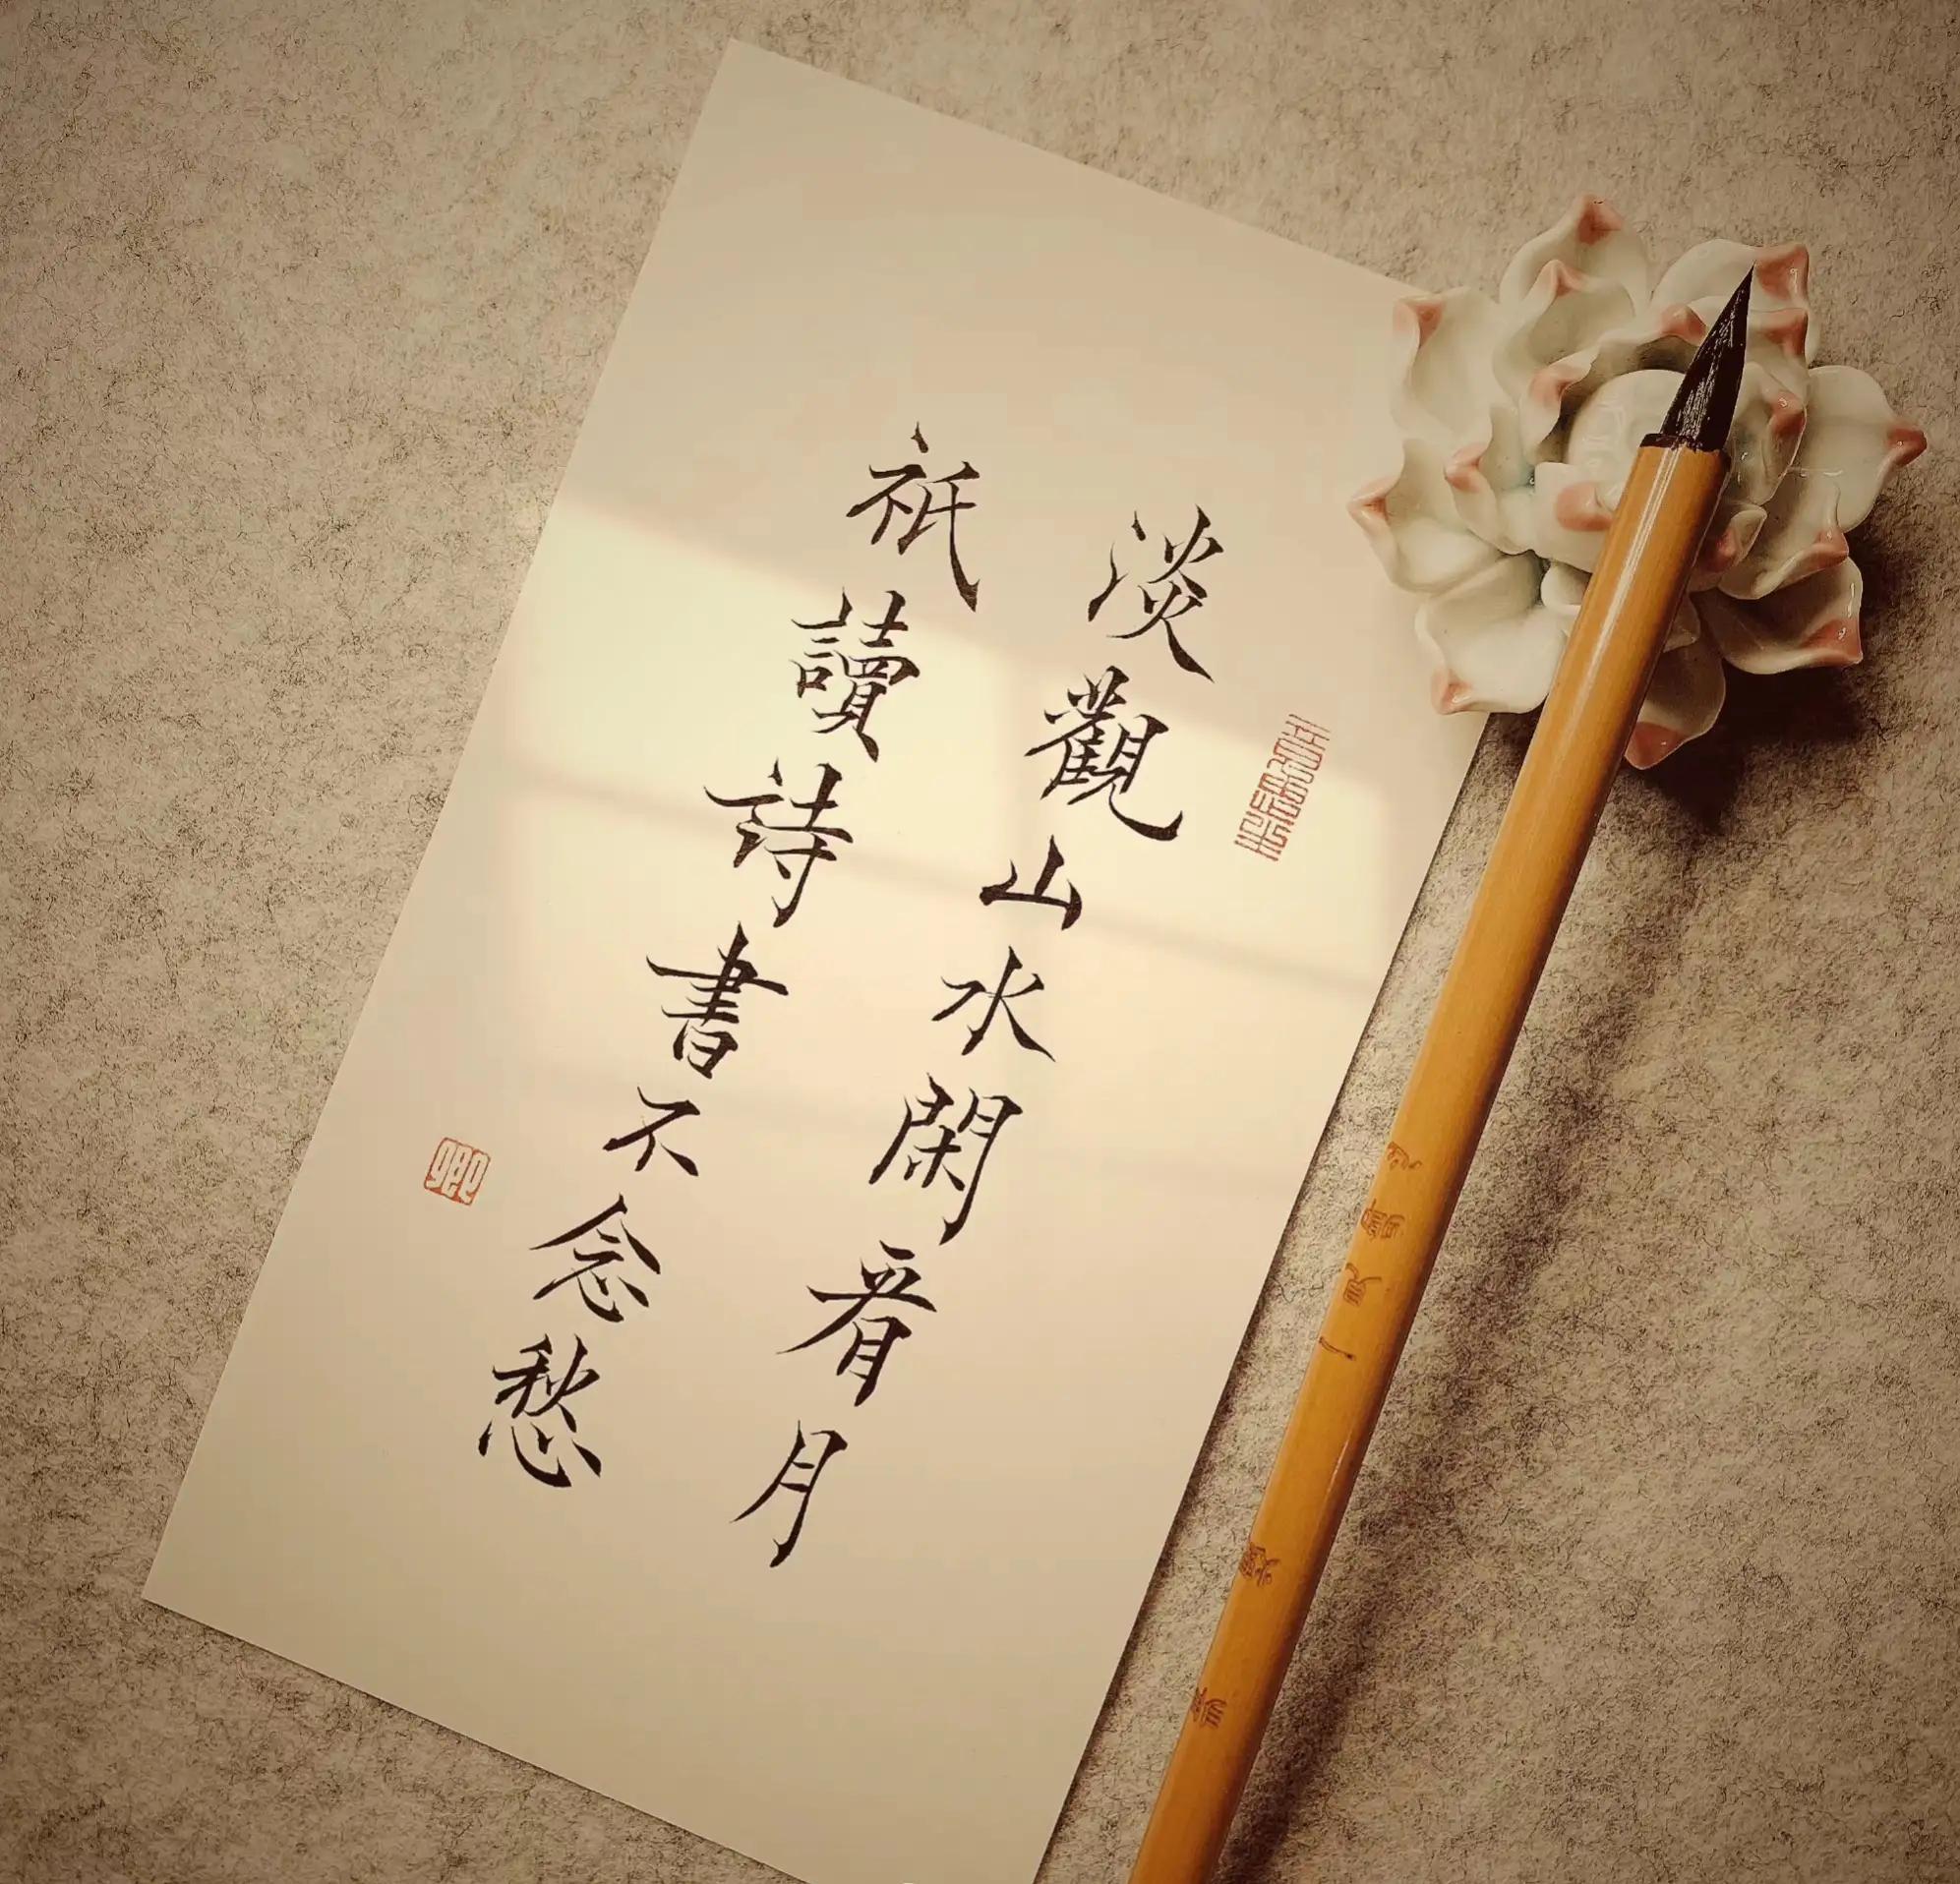 淡觀山水閑看月
祇讀詩書不念愁